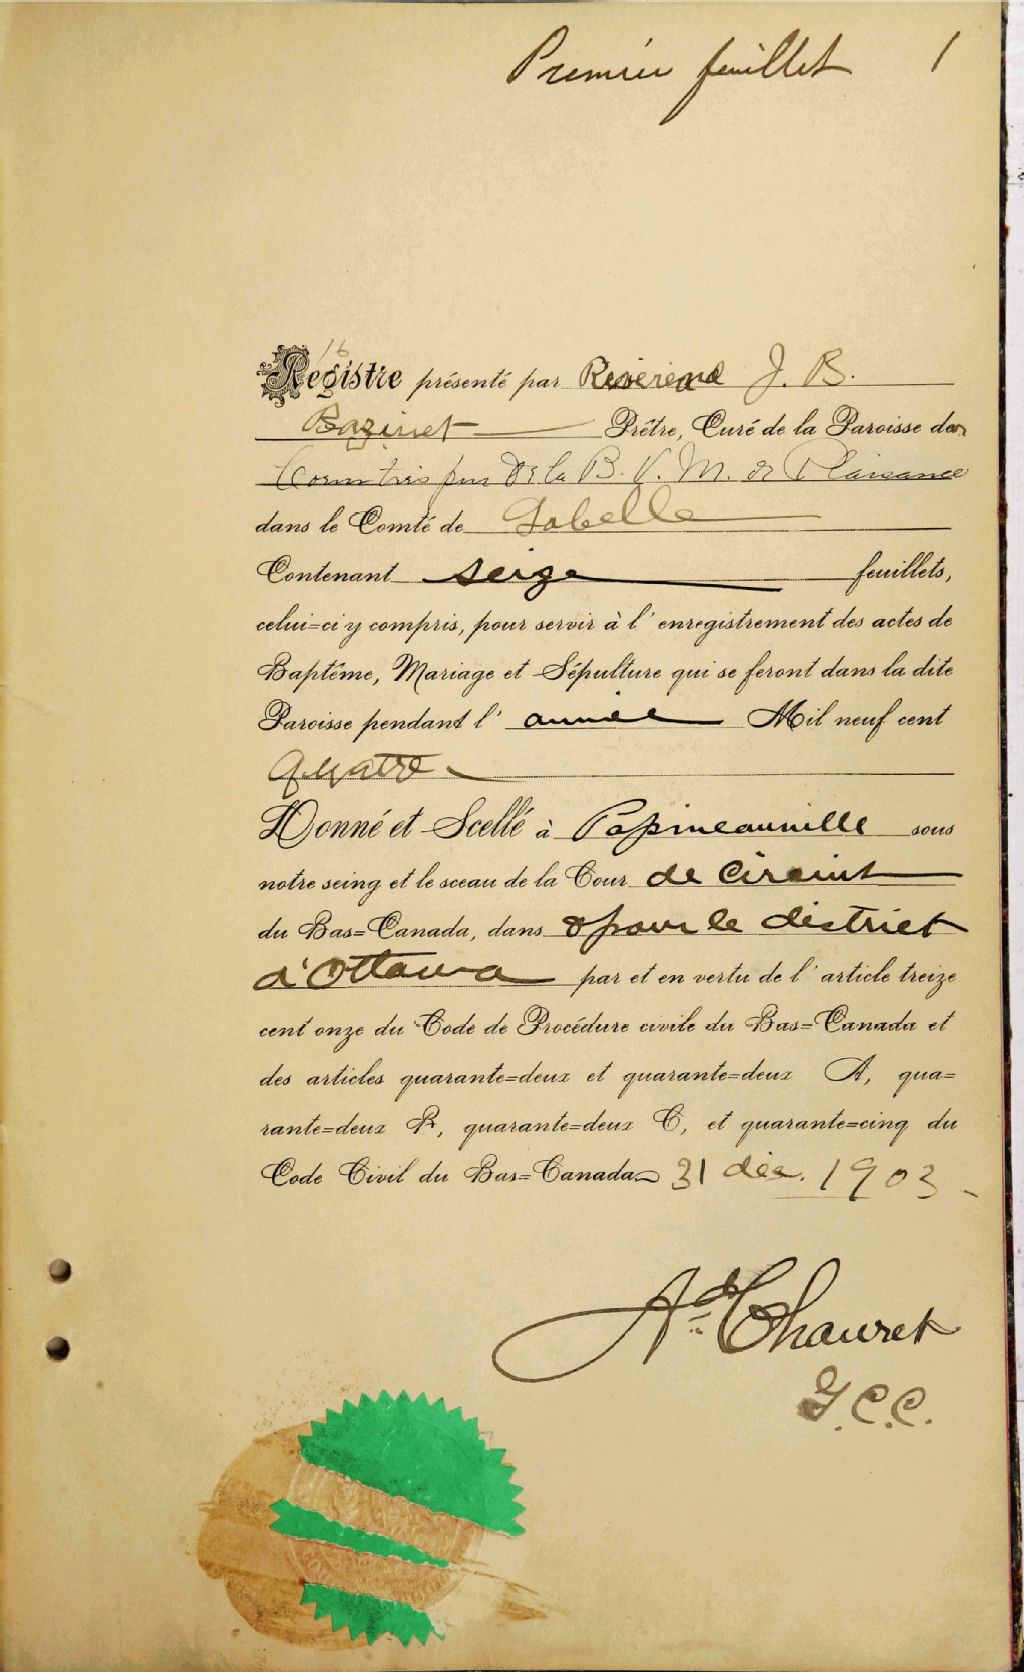 Premier feuillet 1
16
Registre présenté par Révérend J. B.
Bazinet Prêtre, Curé de la Paroisse du
Coeur très pur de la B. V. M. de Plaisance
dans le Comté de Labelle
Contenant seize feuillets,
celui=ci y compris, pour servir à l'enregistrement des actes de
Baptême, Mariage et Sépulture qui se feront dans la dite
Paroisse pendant l'année Mil neuf cent
quatre
Donné et Scellé à Papineauville sous
notre seing et le sceau de la Cour de Circuit
du Bas=Canada, dans & pour le district
d'Ottawa par et en vertu de l'article treize
cent onze du Code de Procédure civile du Bas=Canada et
des articles quarante=deux et quarante=deux A, qua=
rante=deux B, quarante=deux C, et quarante=cinq du
Code Civil du Bas=Canada 31 déc. 1903
Ad Chauret
G.C.C.